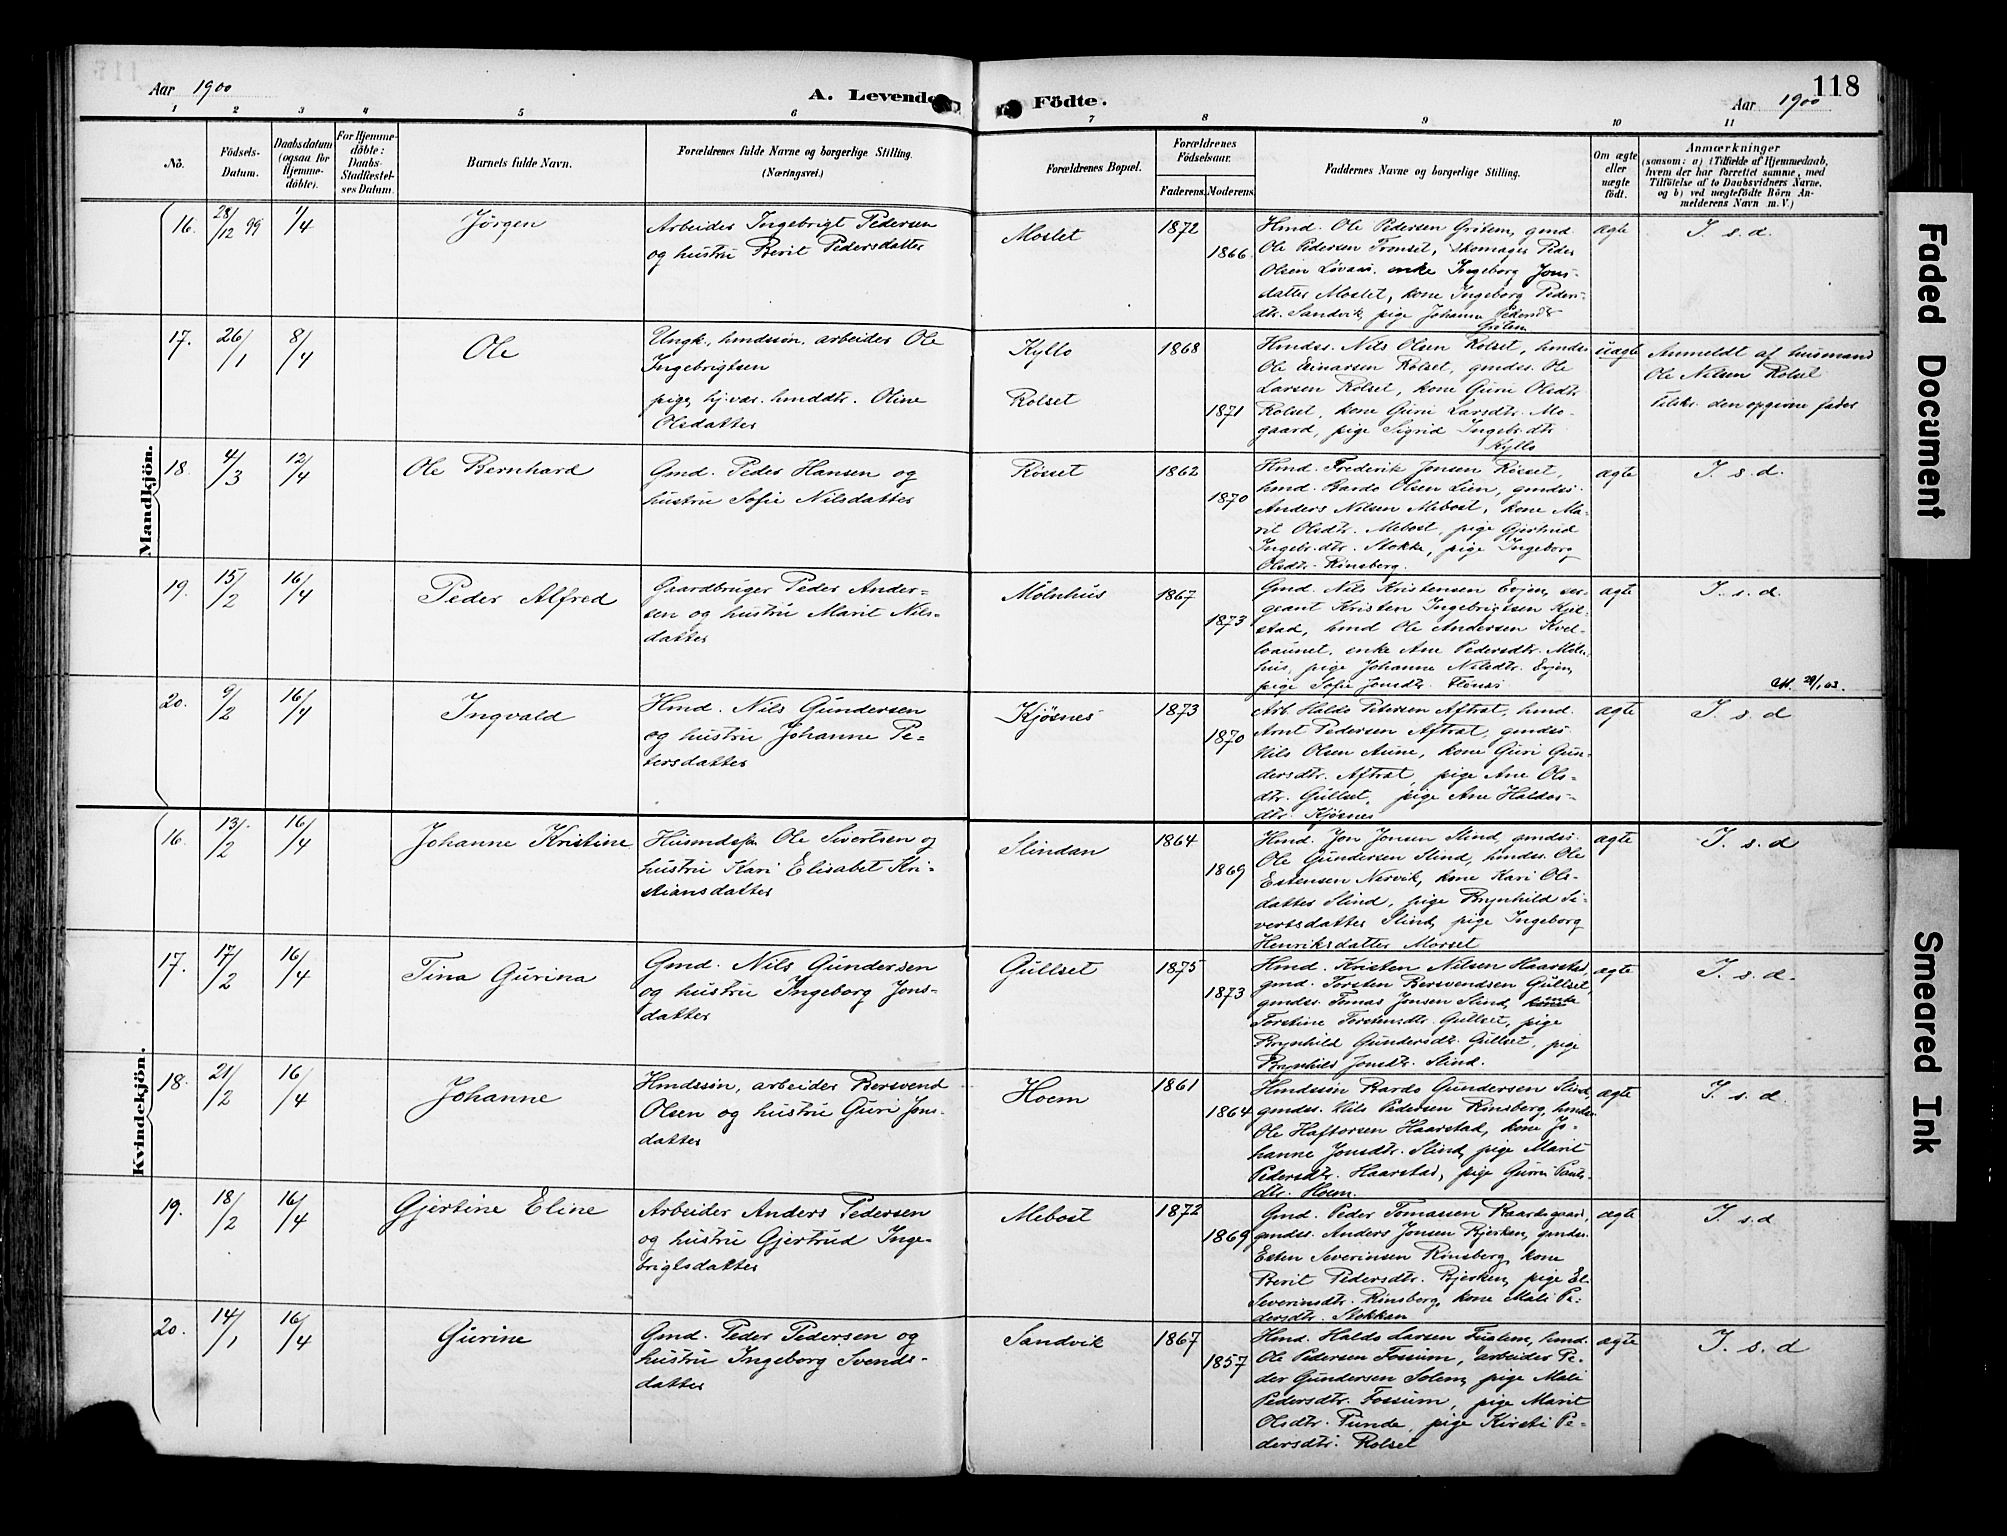 118
Aar 1900
A. Levende Födte.
Aar 1900
1 2 3 4 5 6 7 8 9 10 11
No.
Födsels-Datum.
Daabsdatum (ogsaa for Hjemme-döbte).
For Hjemme-döbte: Daabs-Stadfæstel-ses Datum.
Barnets fulde Navn.
Forældrenes fulde Navne og borgerlige Stilling.
(Næringsvei.)
Forældrenes Bopæl.
Forældrenes Födselsaar.
Faderens. Moderens.
Faddernes Navne og borgerlige Stilling.
Om ægte eller uægte födt.
Anmærkninger
(saasom: a) i Tilfælde af Hjemmedaab,
hvem der har forrettet samme, med
Tilföielse af to Daabsvidners Navne,
og b) ved uægtefödte Börn An-
melderens Navn m. V.)
Mandkjön.
16. 28/12 99 1/4 Jørgen
Arbeider Ingebrigt Pedersen
og hustru Berit Pedersdatter
Moslet 1872 1866
Hmd. Ole Pedersen Gritem, gmd.
Ole Pedersen Tronset, skomager Peder
Olsen Løvaas, enke Ingeborg Jons-
datter Moslet, kone Ingeborg Peders-
dtr. Sandvik, pige Johanna Pedersdtr
Gritem
ægte I. s. d.
17. 26/1 8/4 Ole
Ungk., hmdssøn, arbeider Ole
Ingebrigtsen
pige, hj. vær. hmddtr. Oline
Olsdatter
Kyllo
Rolset
1868 1871
Hmdss. Nils Olsen Rolset, hmdss
Ole Einarsen Rolset, gmdss. Ole
Larsen Rolset, kone Guri Olsdtr.
Rolset, kone Guri Larsdtr. Mo-
gaard, pige Sigrid Ingebr.dtr.
Kyllo
uægte
Anmeldt af husmand
Ole Nilsen Rolset
tilsk. den opgivne fader
18. 4/3 12/4 Ole Bernhard
Gmd. Peder Hansen og
hustru Sofie Nilsdatter
Røsset 1862 1870
Hmd. Frederik Jonsen Røsset,
hmd. Bardo Olsen Lien, gmdss.
Anders Nilsen Mebost, kone Ma-
rit Olsdtr. Mebost, pige Gjertrud
Ingebr.dtr. Stokke, pige Ingeborg
Olsdtr. Rinsberg.
ægte I. s. d.
19. 15/2 16/4 Peder Alfred
Gaardbruger Peder Ander-
sen og hustru Marit Nils-
datter
Mølnhus 1867 1873
Gmd. Nils Kristensen Evjen, ser-
geant Kristen Ingebrigtsen Kjel-
stad, hmd Ole Andersen Kvel-
loaunet, enke Ane Pedersdtr. Møln-
hus, pige Johanne Nilsdtr. Evjen,
pige Sofie Jonsdtr.
ægte I. s. d.
29/1 03.
20. 9/2 16/4 Ingvald
Hmd. Nils Gundersen
og hustru Johanne Pe-
tersdatter
Kjøsnes 1873 1870
Arb. Haldo Petersen Aftret, hmd.
Arnt Pedersen Aftret, gmdss.
Nils Olsen Aune, kone Guri Gun-
dersdtr. Aftret, pige Ane Ols-
dtr. Gullset, pige Ane Haldos-
dtr. Kjøsnes
ægte I. s. d
Kvindekjön.
16. 13/2 16/4 Johanne Kristine
Husmdsfa. Ole Sivertsen og
hustru Kari Elisabet Kri-
stiansdatter
Slindan 1864 1869
Hmd. Jon Jonsen Slind, gmdss.
Ole Gundersen Slind, hmdss. Ole
Estensen Nervik, kone Kari Ols-
datter Slind, pige Brynhild Si-
vertsdatter Slind, pige Ingeborg
Henriksdatter Morset
ægte I. s. d
17. 17/2 16/4 Tina Gurina
Gmd. Nils Gundersen
og hustru Ingeborg Jons-
datter
Gullset 1875 1873
Hmd. Kristen Nilsen Haarstad,
gmd. Torsten Bersvendsen Gullset,
gmdss. Tomas Jonsen Slind, enke
Torstine Torstensdtr. Gullset, pige
Brynhild Gundersdtr. Gullset, pige
Brynhild Jonsdtr. Slind.
ægte I. s. d.
18. 21/2 16/4 Johanne
Hmdssøn, arbeider Bersvend
Olsen og hustru Guri Jons-
datter
Hoem 1861 1864
Hmdssøn Bardo Gundersen Slind,
gmdss. Nils Pedersen Rinsberg, hmdss
Ole Haftorsen Haarstad, kone Jo-
hanne Jonsdtr. Slind, pige Marit
Pedersdtr. Haarstad, pige Guru Pauls-
dtr. Hoem.
ægte I. s. d.
19. 18/2 16/4 Gjertine Eline
Arbeider Anders Pedersen
og hustru Gjertrud Inge-
brigtsdatter
Mebost 1872 1869
Gmd. Peder Tomassen Baardsgaard,
gmdss. Anders Jonsen Bjerken, gmdss.
Esten Severinsen Rinsberg, kone
Berit Pedersdtr. Bjerken, pige El.
Severinsdtr. Rinsberg, kone Mali Pe-
dersdtr. Stokkan
ægte I. s. d
20. 14/1 16/4 Gurine
Gmd. Peder Pedersen og
hustru Ingeborg Svends-
datter
Sandvik 1867 1857
Hmd. Haldo Larsen Fuglem, hmd.
Ole Pedersen Fossum, arbeider Pe-
der Gundersen Solem, pige Mali
Pedersdtr. Fossum, pige Marit
Olsdtr. Punde, pige Kirsti Pe-
dersdtr. Rolset
ægte I. s. d
Faded Document
Smeared Ink